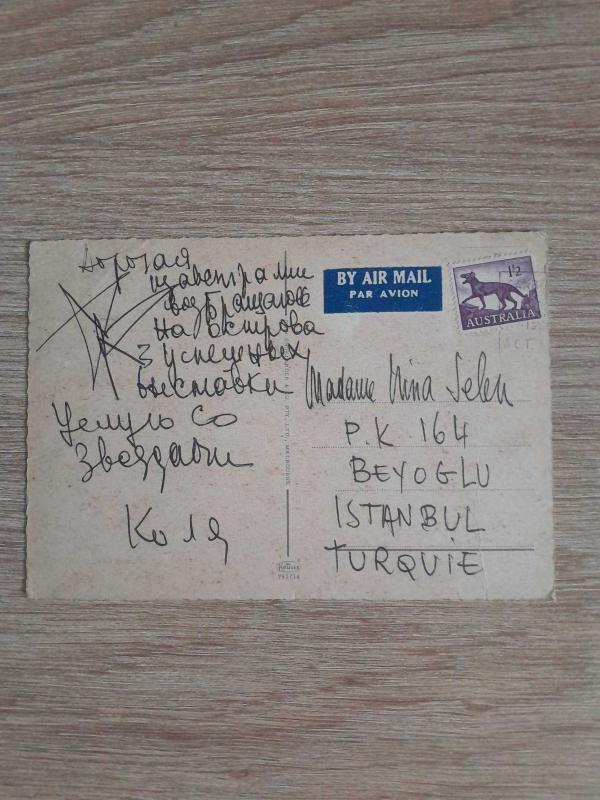 Дорогая
возвращаюсь
на острова
3 успешных
выставки
Целую со
Звездами
Коля
BY AIR MAIL
PAR AVION
1/2
AUSTRALIA
Madame Nina Selen
P.K 164
BEYOGLU
ISTANBUL
TURQUIE